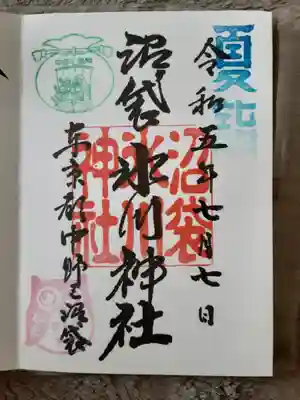 夏詣
令和五年七月七日
沼袋氷川神社
沼袋
氷川
神社
東京都中野区沼袋